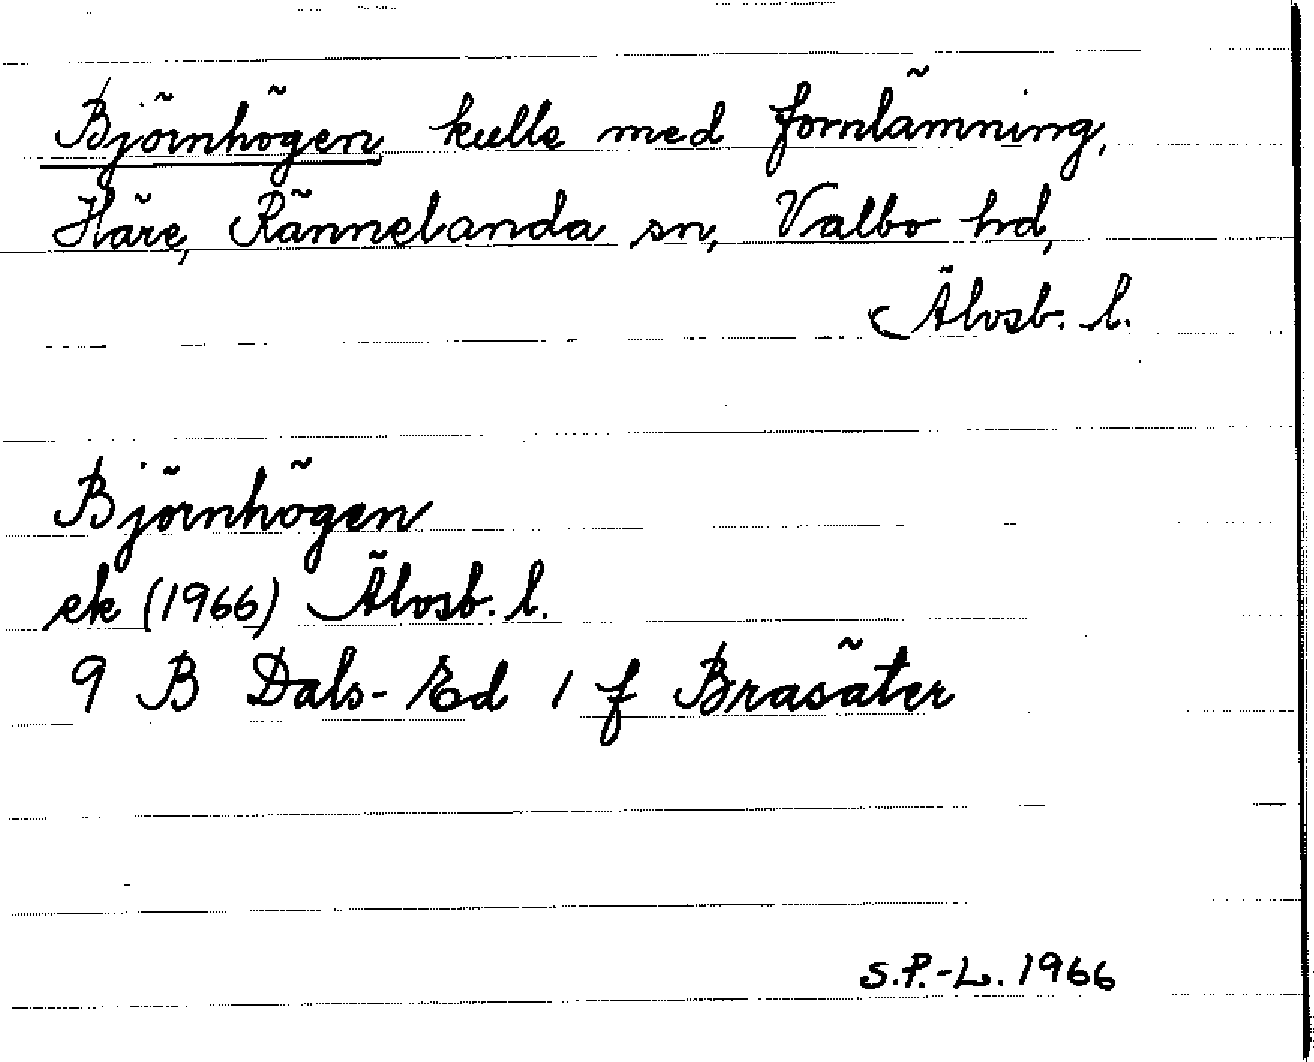 Björnhögen kulle med fornlämning,
Häre, Rännelanda sn, Valbo hd,
Älvsb. l.
Björnhögen
ek (1966) Älvsb. l.
9 B Dals-Ed 1 f Brasäter
S.P.-L. 1966